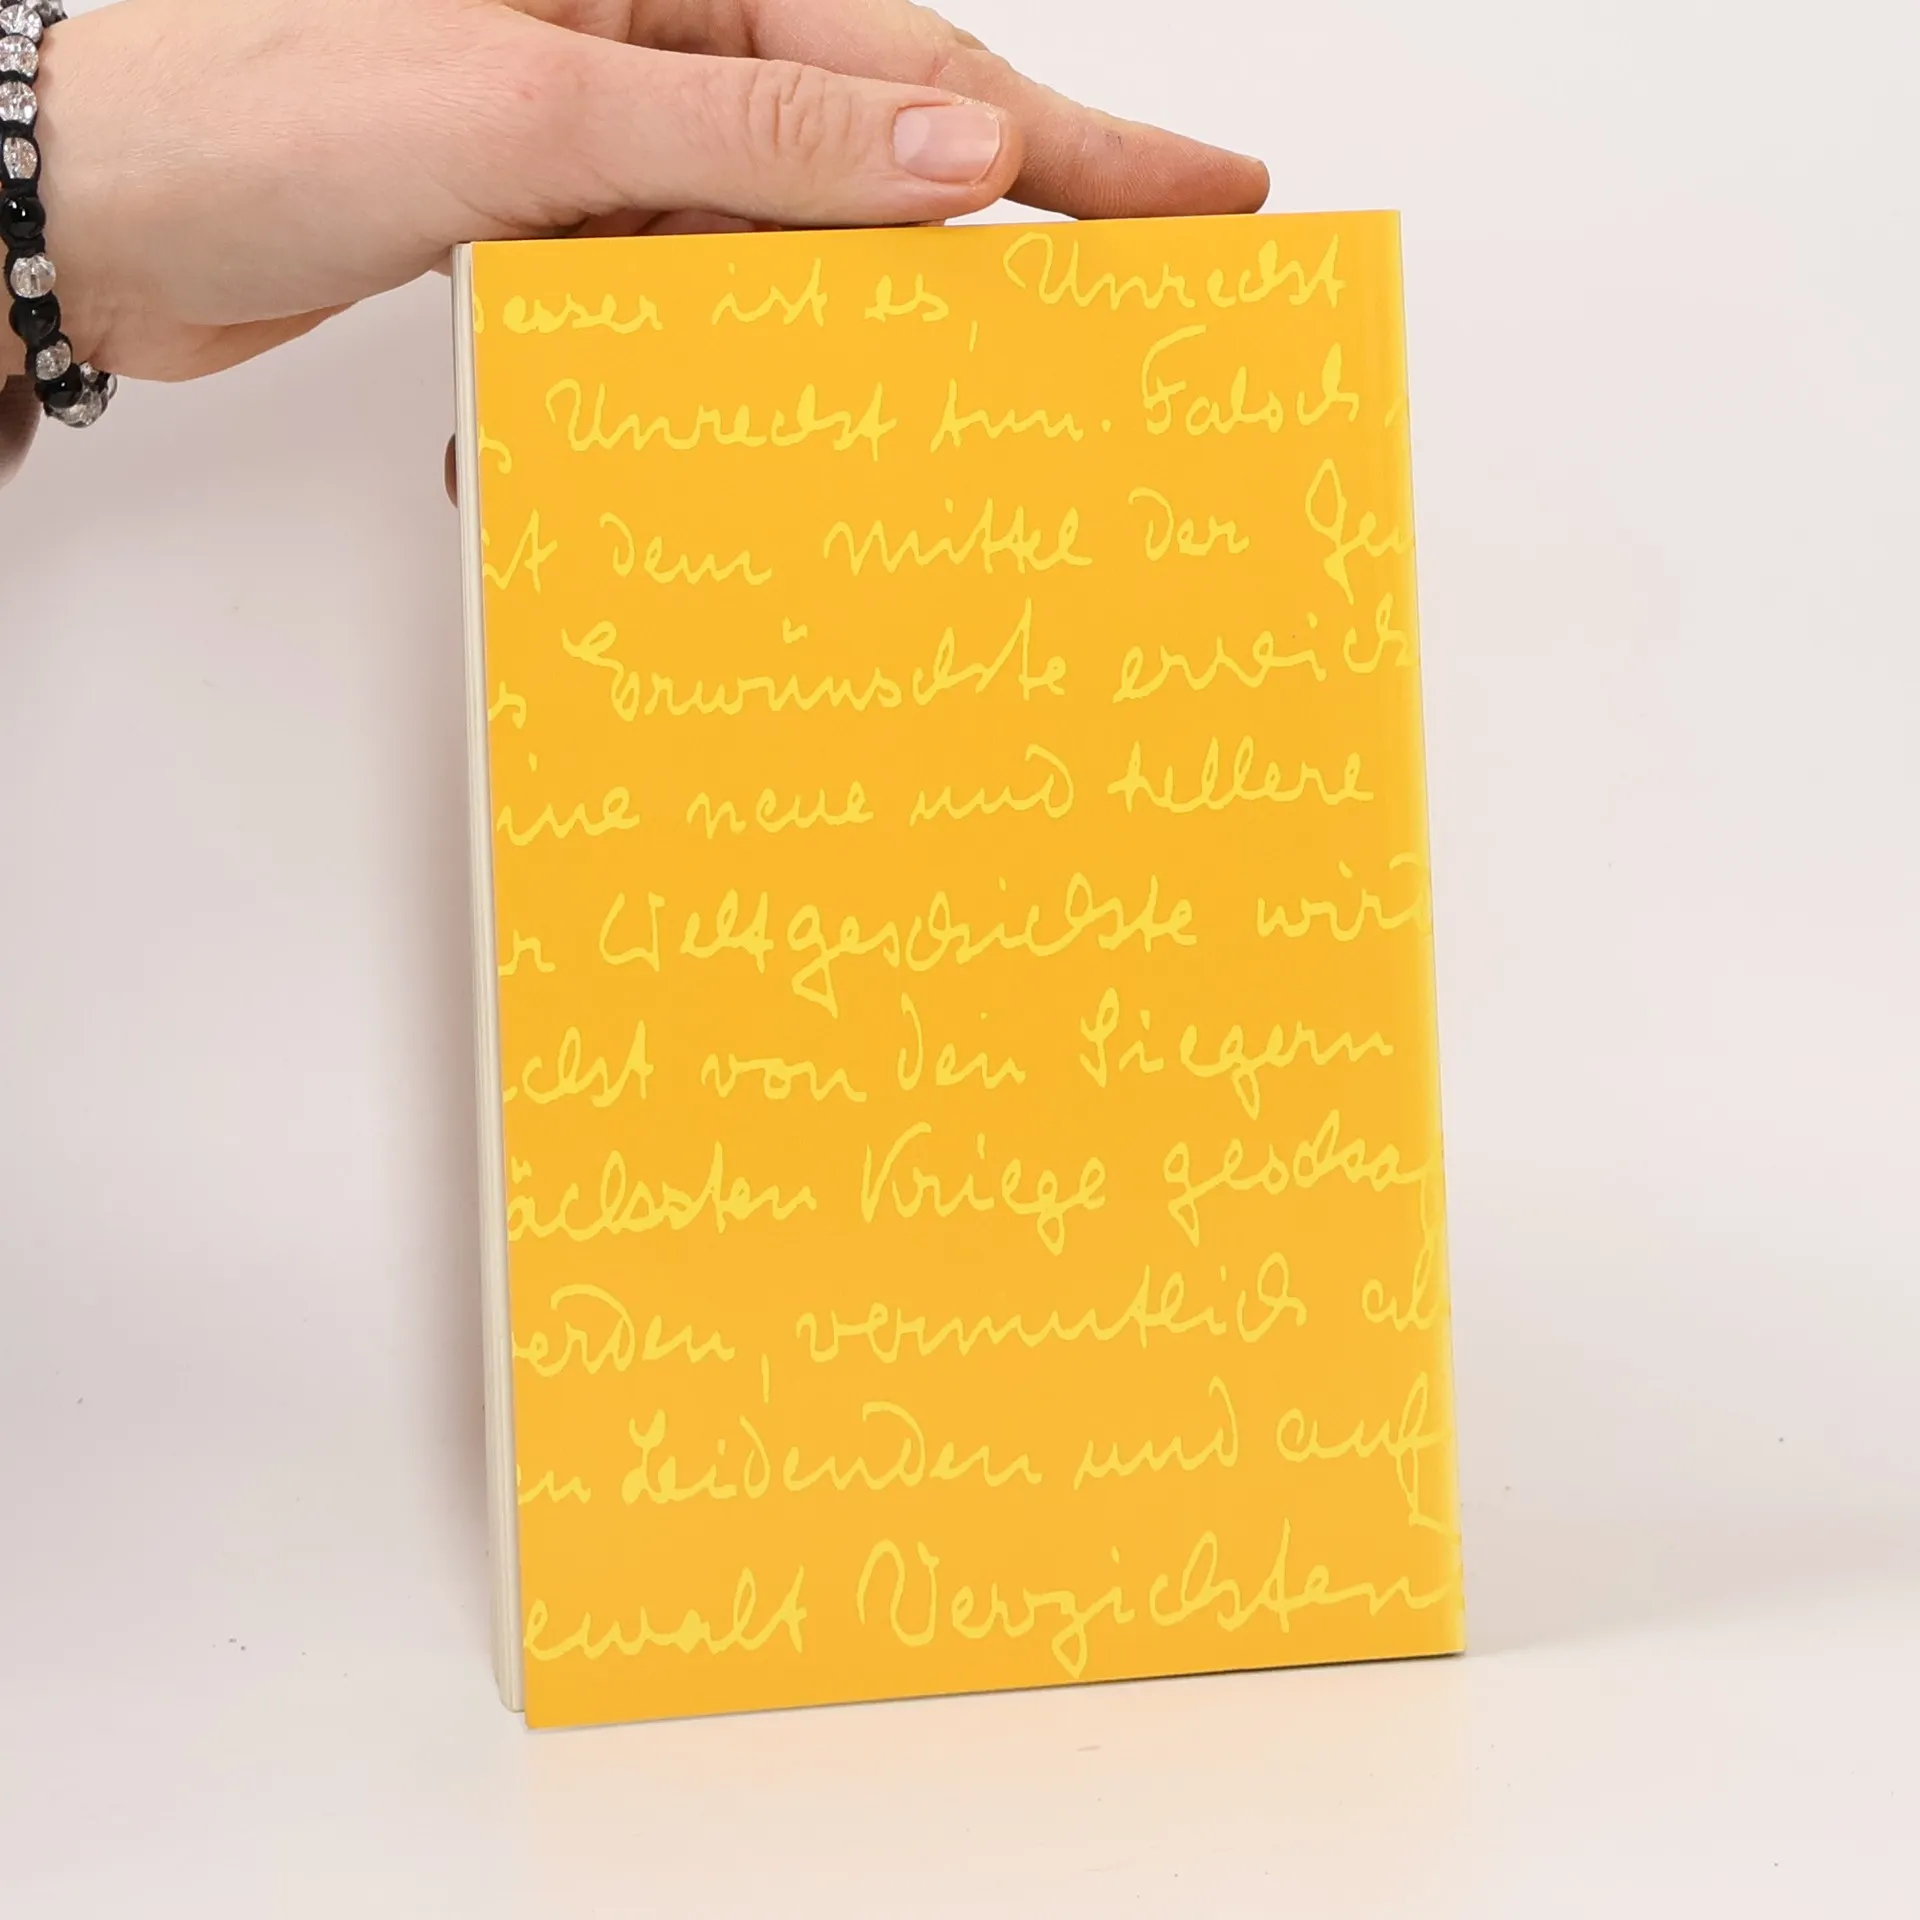 esser ist es, Unrecht
s Unrecht tun. Falsch
it dem Mittel der Gew
s Erwünschte erreich
ine neue und hellere
r Weltgeschichte wird
icht von den Siegern
ächsten Kriege geschaf
erden, vermutlich ab
en Leidenden und auf
ewalt Verzichten